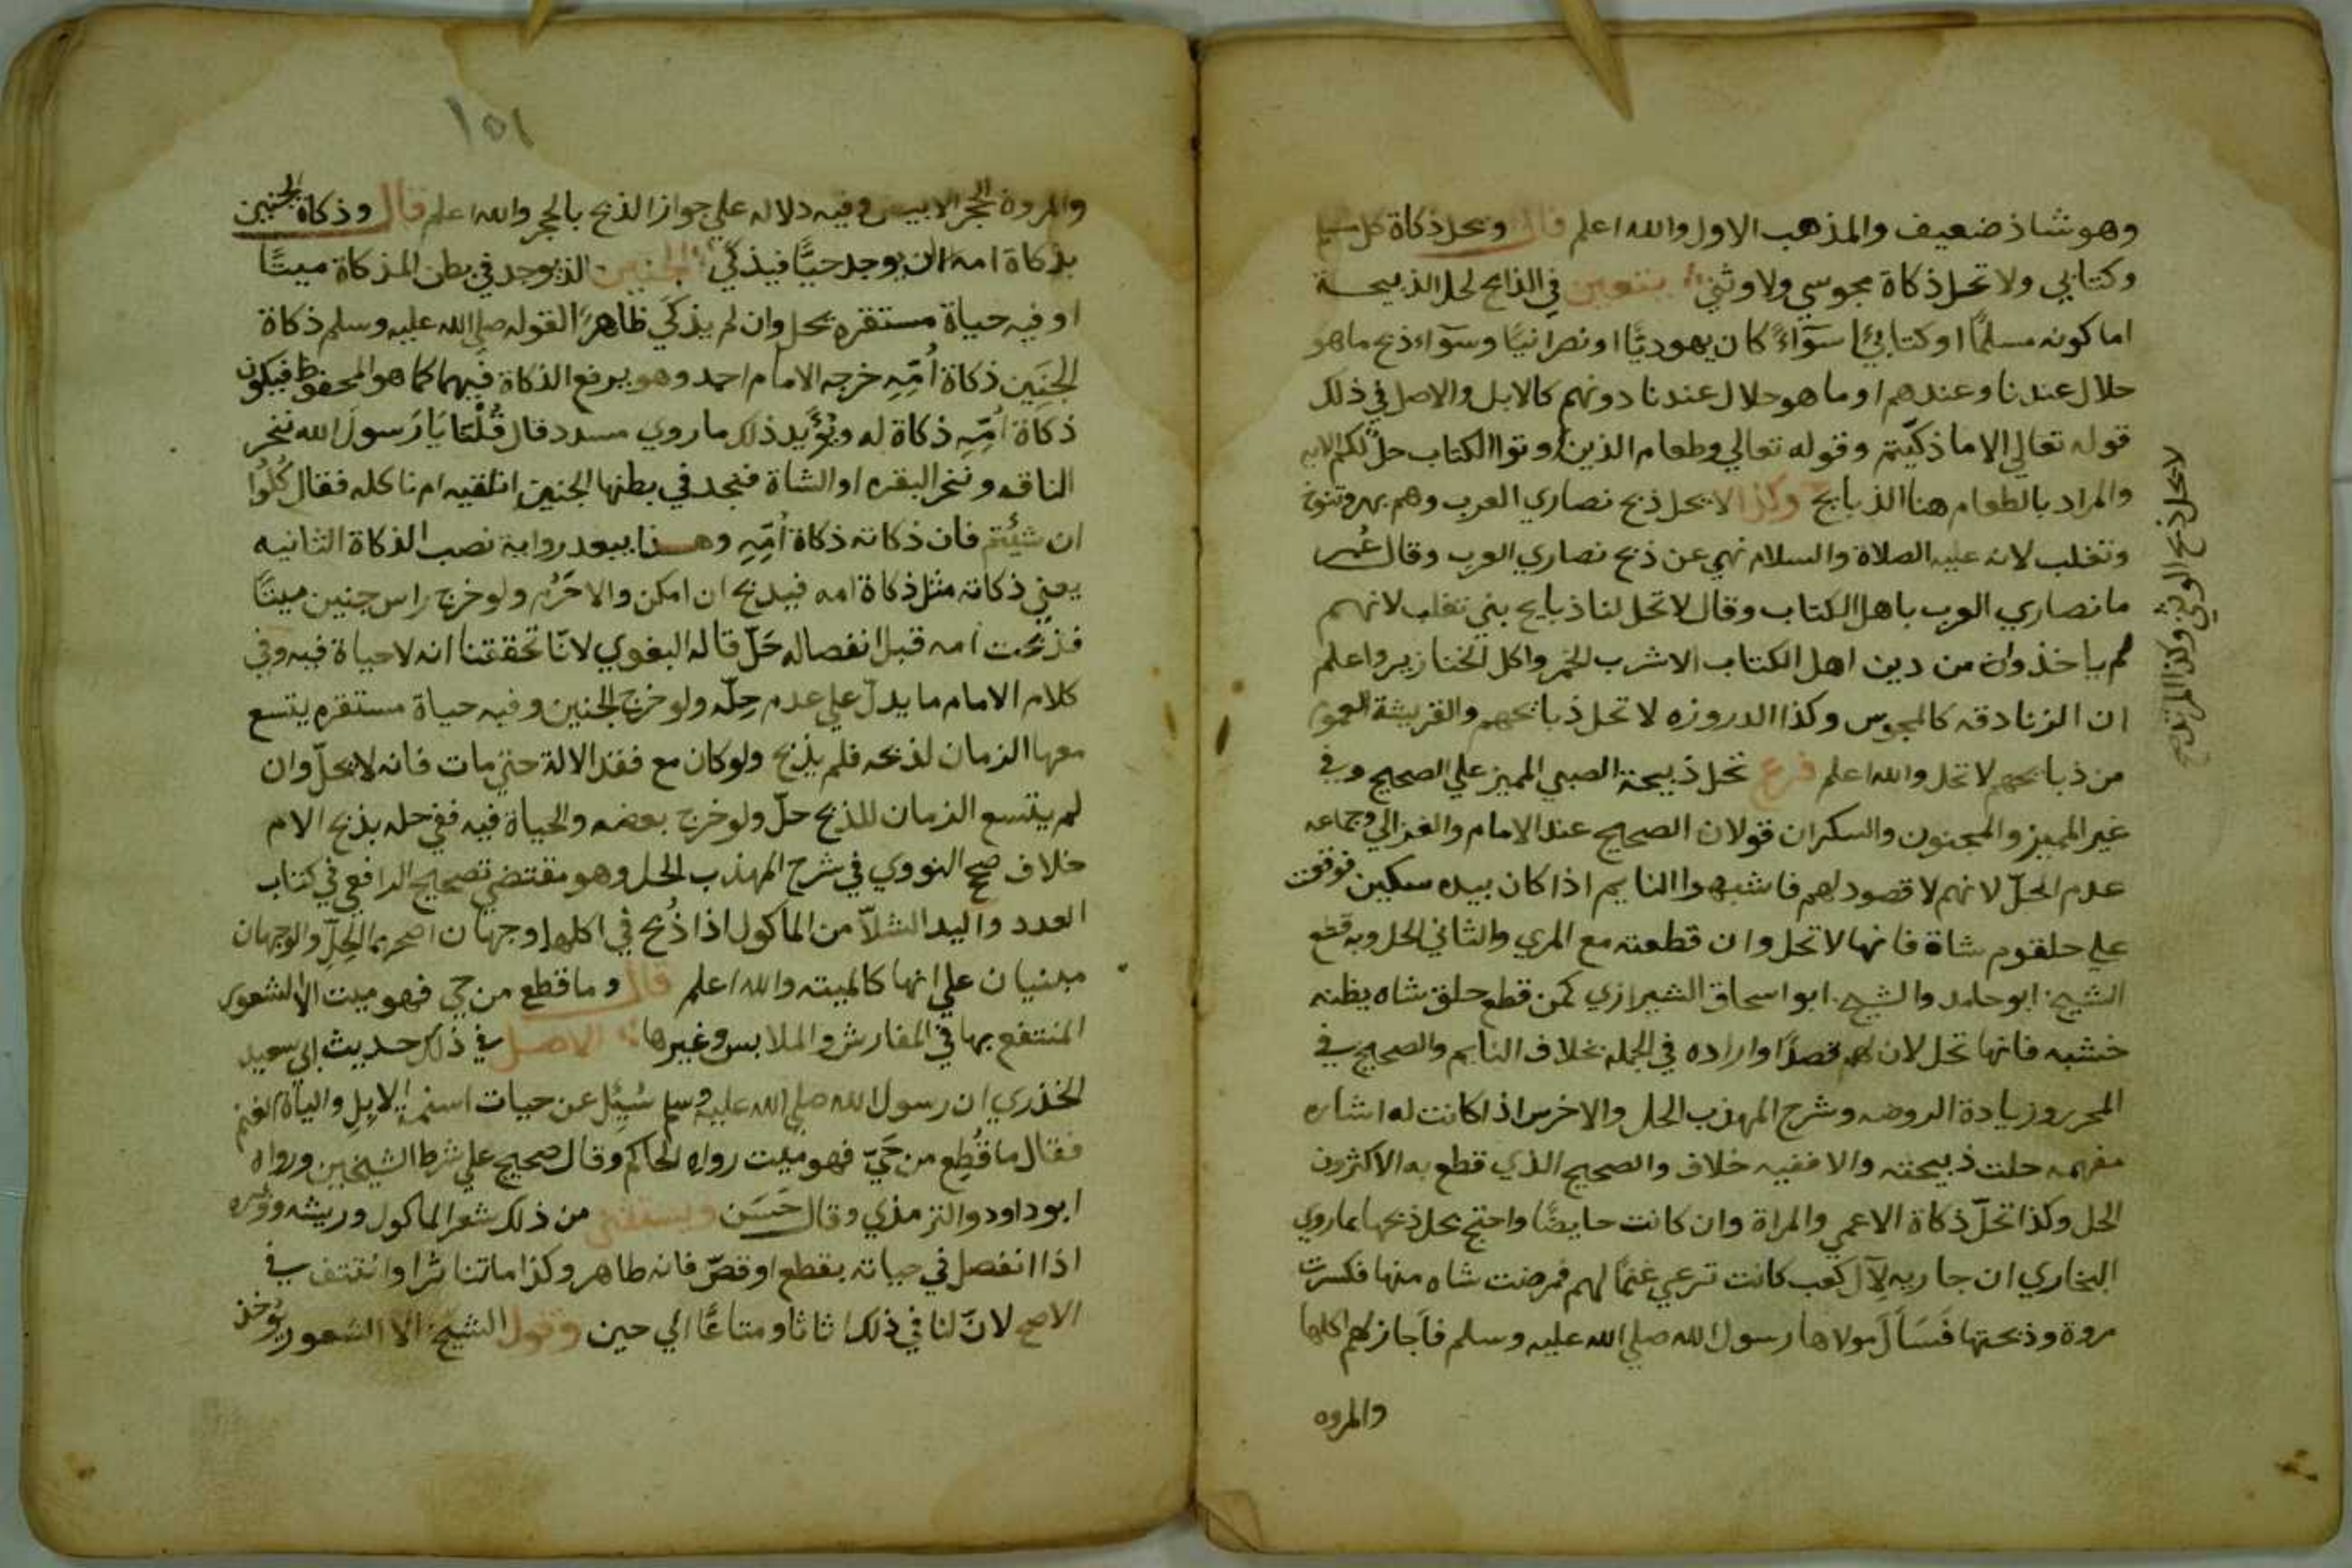 وهو شاذ ضعيف والمذهب الاول والله اعلم قال وتحل ذكاة كل مسلم
وكتابي ولا تحل ذكاة مجوسي ولا وثني يتعين في الذابح لحل الذبيحة
اما كونه مسلمًا او كتابيًا سوآءً كان يهوديًّا او نصرانيًا وسوآء ذبح ما هو
حلال عندنا وعندهم او ما هو حلال عندنا دونهم كالابل والاصل في ذلك
قوله تعالي الا ما ذكيّتم وقوله تعالي وطعام الذين اوتوا الكتاب حلّ لكم الايه
والمراد بالطعام هنا الذبايح وكذا لا يحل ذبح نصاري العرب وهم بهر وتنوخ
وتغلب لانه عليه الصلاة والسلام نهي عن ذبح نصاري العرب وقال عُمر
ما نصاري العرب باهل الكتاب وقال لا تحل لنا ذبايح بني تغلب لانهم
لم ياخذوا من دين اهل الكتاب الا شرب الخمر واكل الخنازير واعلم
ان الزنادقه كالمجوس وكذا الدروزه لا تحل ذبائحهم والقريشة المعمول
من ذبائحهم لا تحل والله اعلم فرع تحل ذبيحة الصبي المميز علي الصحيح وفي
غير المميز والمجنون والسكران قولان الصحيح عند الامام والغزالي وجماعه
عدم الحلّ لانهم لا قصود لهم فاشبهوا النايم اذا كان بيده سكين فوقعت
علي حلقوم شاة فانها لا تحل وان قطعته مع المري والثاني الحل وبه قطع
الشيخ ابو حامد والشيخ ابو اسحاق الشيرازي كمن قطع حلق شاه يظنه
خشبه فانها تحل لان لهم قصدًا واراده في الجمله بخلاف النايم والصحيح في
المحرر وزيادة الروضه وشرح المهذب الحل والاخرس اذا كانت له اشاره
مفهمه حلت ذبيحته والا ففيه خلاف والصحيح الذي قطع به الاكثرون
الحل وكذا تحلّ ذكاة الاعمي والمراة وان كانت حايضًا واحتج بحل ذبحها بما روي
البخاري ان جاريه لآل كعب كانت ترعي غنمًا لهم فمرضت شاه منها فكسرت
مروة وذبحتها فَسَأل مولاها رسول الله صلي الله عليه وسلم فاَجاز لهم اكلها
والمروه
لا يحل ذبح الوثني وكذا المرتد
١٥١
والمروة الحجر الابيض وفيه دلاله علي جواز الذبح بالحجر والله اعلم قال وذكاة الجنين
بذكاة امه الا ان يوجد حيًّا فيذكي الجنين الذي وجد في بطن المذكاة ميتًا
او فيه حياة مستقره يحل وان لم يذكَي ظاهرًا لقوله صلي الله عليه وسلم ذكاة
الجنَين ذكاة اُمّهِ خرجه الامام احمد وهو برفع الذكاة فيهما كما هو المحفوظ فيكون
ذكاة اُمّهِ ذكاة له ويؤيد ذلك ما روي مسدد قال قُلْنَا يَا رَسولَ الله ننحر
الناقه وننحر البقره او الشاة فنجد في بطنها الجنين انلقيه ام ناكله فقال كُلُوا
ان شيئتم فان ذكاته ذكاة اُمّهِ وهذا يبعد رواية نصب الذكاة الثانيه
يعني ذكاته مثل ذكاة امه فيذبح ان امكن والا حَرُم ولو خرج راس جنين ميتًا
فذبحت امه قبل انفصاله حَلّ قاله البغوي لانّا تحققنا انه لا حياة فيه وفي
كلام الامام ما يدلّ علي عدم حِلّه ولو خرج الجنين وفيه حياة مستقره يتسع
معها الزمان لذبحه فلم يذبح ولو كان مع فقد الالة حتي مات فانه لا يحلّ وان
لم يتسع الزمان للذبح حلّ ولو خرج بعضه والحياة فيه ففي حله بذبح الام
خلاف صحح النووي في شرح المهذب الحل وهو مقتضي تصحيح الرافعي في كتاب
العدد واليد الشلاّ من الماكول اذا ذُبح في اكلها وجهان اصحهما الحِلّ والوجهان
مبنيان علي انها كالميته والله اعلم قال وما قطع من حي فهو ميت الا الشعور
المنتفع بها في المفارش والملابس وغيرها الاصل في ذلك حديث ابي سعيد
الخذري ان رسول الله صلي الله عليه وسلم سُيِل عن حيات اسنمة الابِل واليات الغنم
فقال ما قُطِع من حَيّ فهو ميت رواه الحاكم وقال صحيح علي شرط الشيخين ورواه
ابو داود والترمذي وقال حَسَن ويستثني من ذلك شعر الماكول وريشه ووبره
اذا انفصل في حياته بقطع او قصّ فانه طاهر وكذا ما تناثر او انتتف في
الاصح لانّ لنا في ذلك اثاثا ومتاعًا الي حين وقول الشيخ الا الشعور يُوخذ